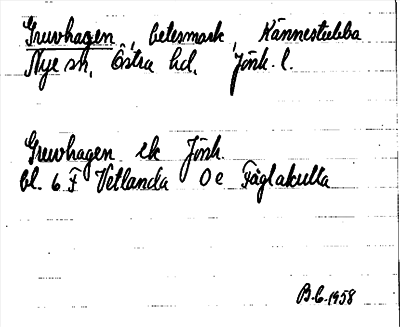 Gruvhagen, betesmark, Kännestubba
Nye sn, Östra hd, Jönk. l.
Gruvhagen ek Jönk.
bl. 6 F Vetlanda 0 e Fåglakulla
B.G. 1958